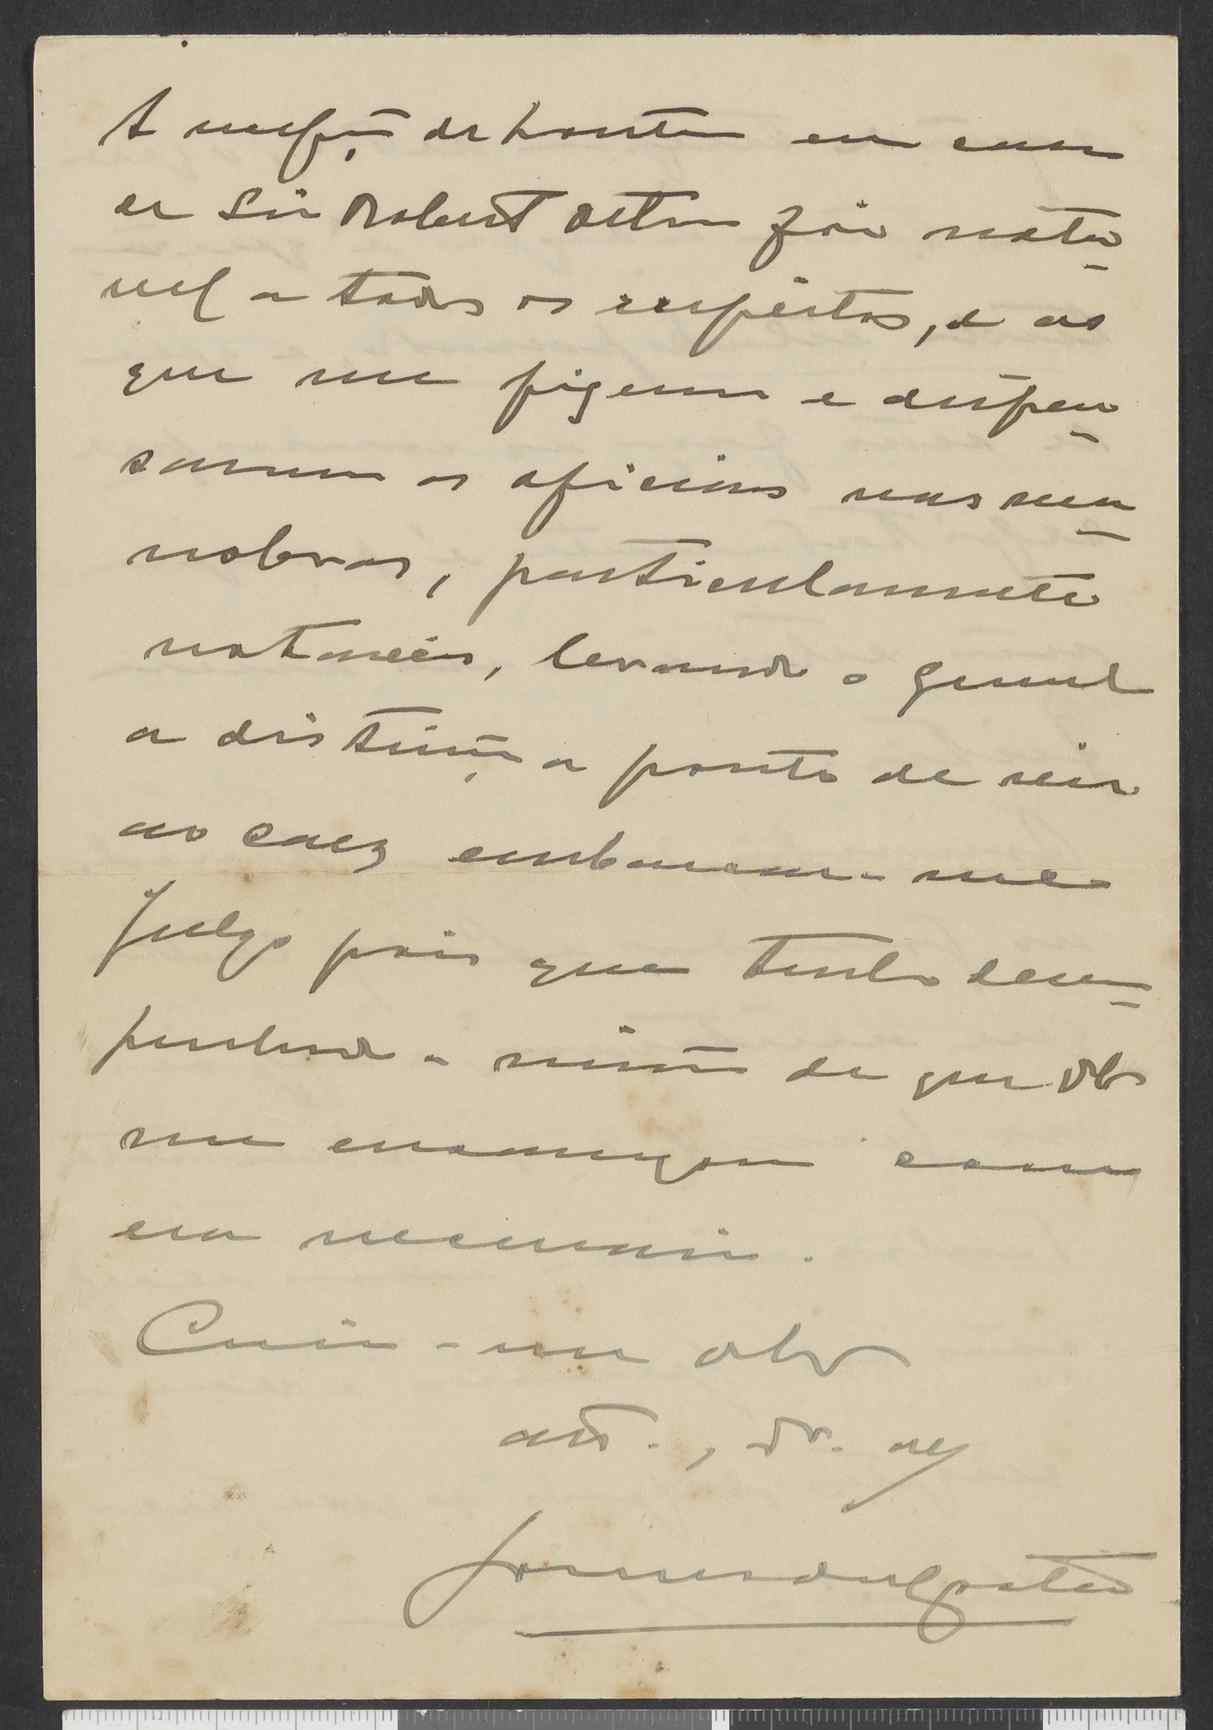 A recepção de hontem em casa
de Sir Robert Arthur foi notá-
vel a todos os respeitos, e as
que me fizeram e dispen-
saram os oficiais nas ma-
nobras, particularmente
notaveis, levando o general
a distinção a ponto de vir
ao caez embarcar-me.
Julgo pois que tenho desem-
penhado a missão de que
me encarregou como
era necessario.
Creia-me
att.,